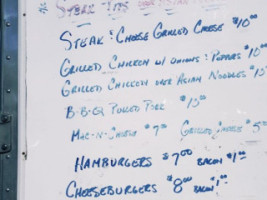 STEAK TIPS
STEAK & CHEESE GRILLED CHEESE $10.00
GRILLED CHICKEN W/ ONIONS & PEPPERS $10.00
GRILLED CHICKEN OVER ASIAN NOODLES $10
B-B-Q PULLED PORK $10.00
MAC-N-CHEESE $7.00 GRILLED CHEESE $5
HAMBURGERS $7.00 BACON $1.00
CHEESEBURGERS $8.00 BACON $1.00